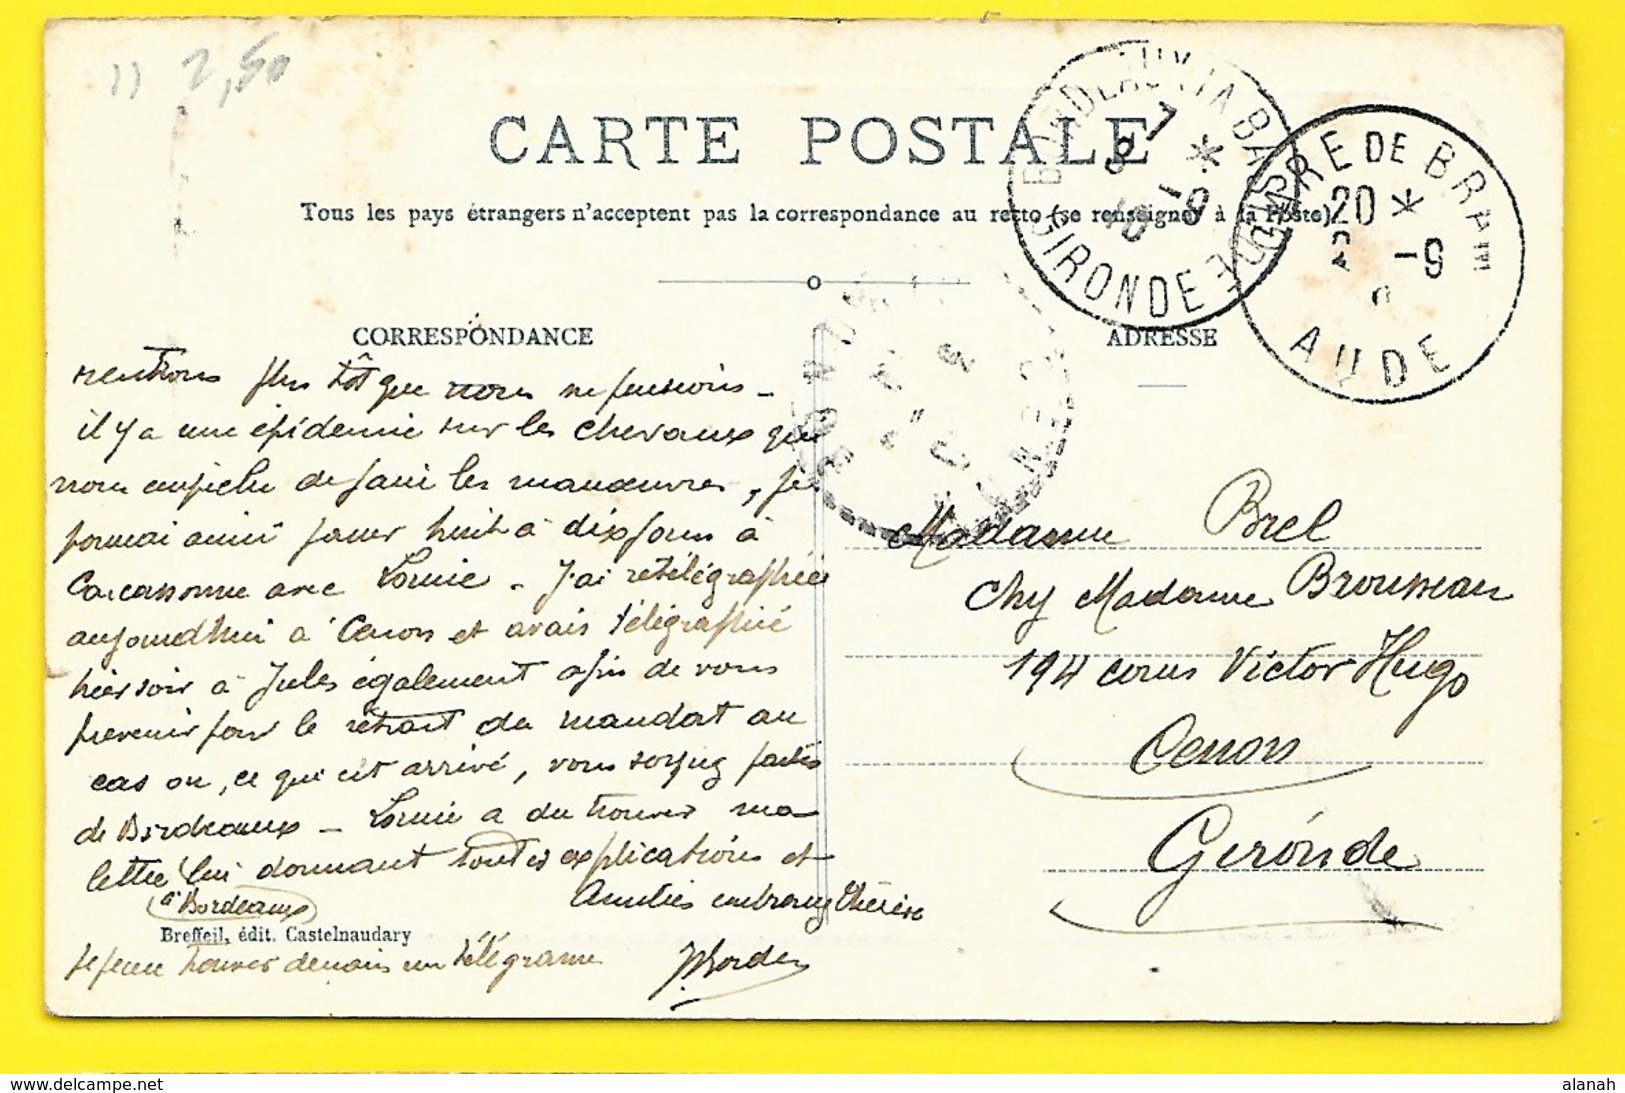 11 2,50
CARTE POSTALE
Tous les pays étrangers n'acceptent pas la correspondance au recto (se renseigner à la Poste).
BORDEAUX LA BASTIDE
GIRONDE
7 *
-9
PIERRE DE BRAM
20 *
-9
AUDE
CORRESPONDANCE
ADRESSE
CENON
rentrons plus tôt que nous ne pensions -
il y a une épidémie sur les chevaux qui
nous empêche de faire les manœuvres, je
pourrai ainsi passer huit à dix jours à
Carcassonne avec Louise - J'ai retélégraphié
aujourd'hui à Cenon et avais télégraphié
hier soir à Jules également afin de vous
prévenir pour le retrait du mandat au
cas où, ce qui est arrivé, vous soyez partis
de Bordeaux - Louise a du trouver ma
lettre lui donnant toutes explications et
à Bordeaux
Amitiés embrassez Thérèse
Breffeil, édit. Castelnaudary
je peux trouver demain un télégramme
Madame Brel
Chez Madame Brousseau
194 cours Victor Hugo
Cenon
Gironde
delcampe.net
alanah